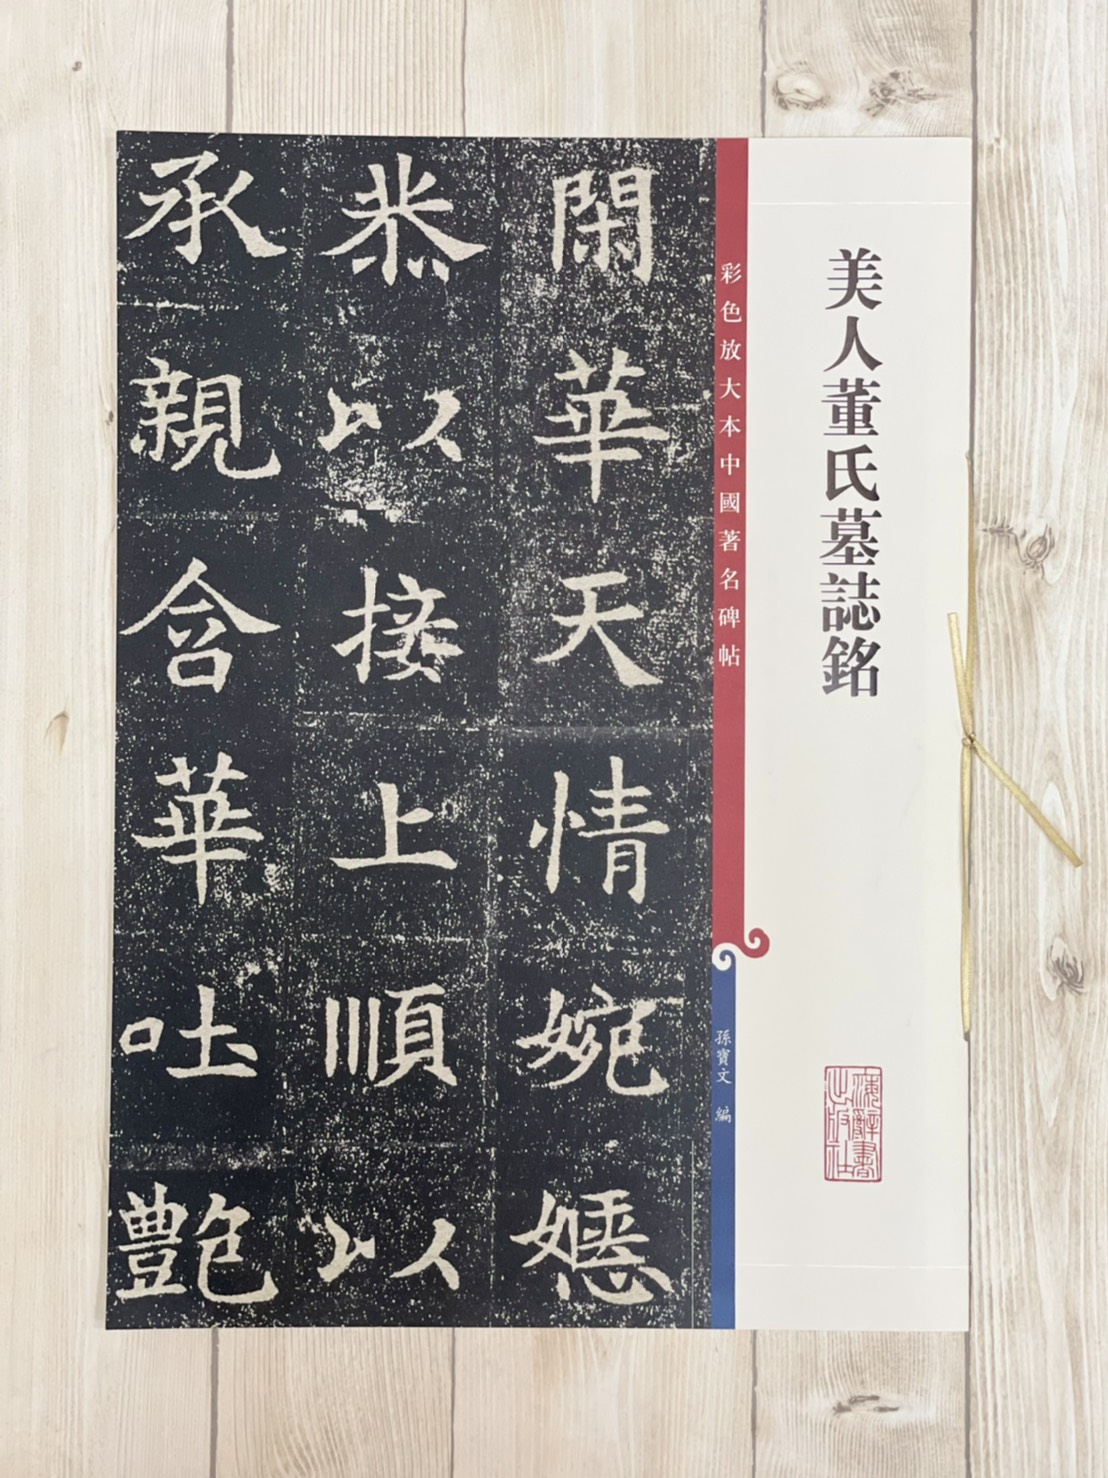 美人董氏墓誌銘
彩色放大本中國著名碑帖
孫寶文 編
海辭書
出版社
閑華天情婉嫕
恭以接上順以
承親含華吐艶